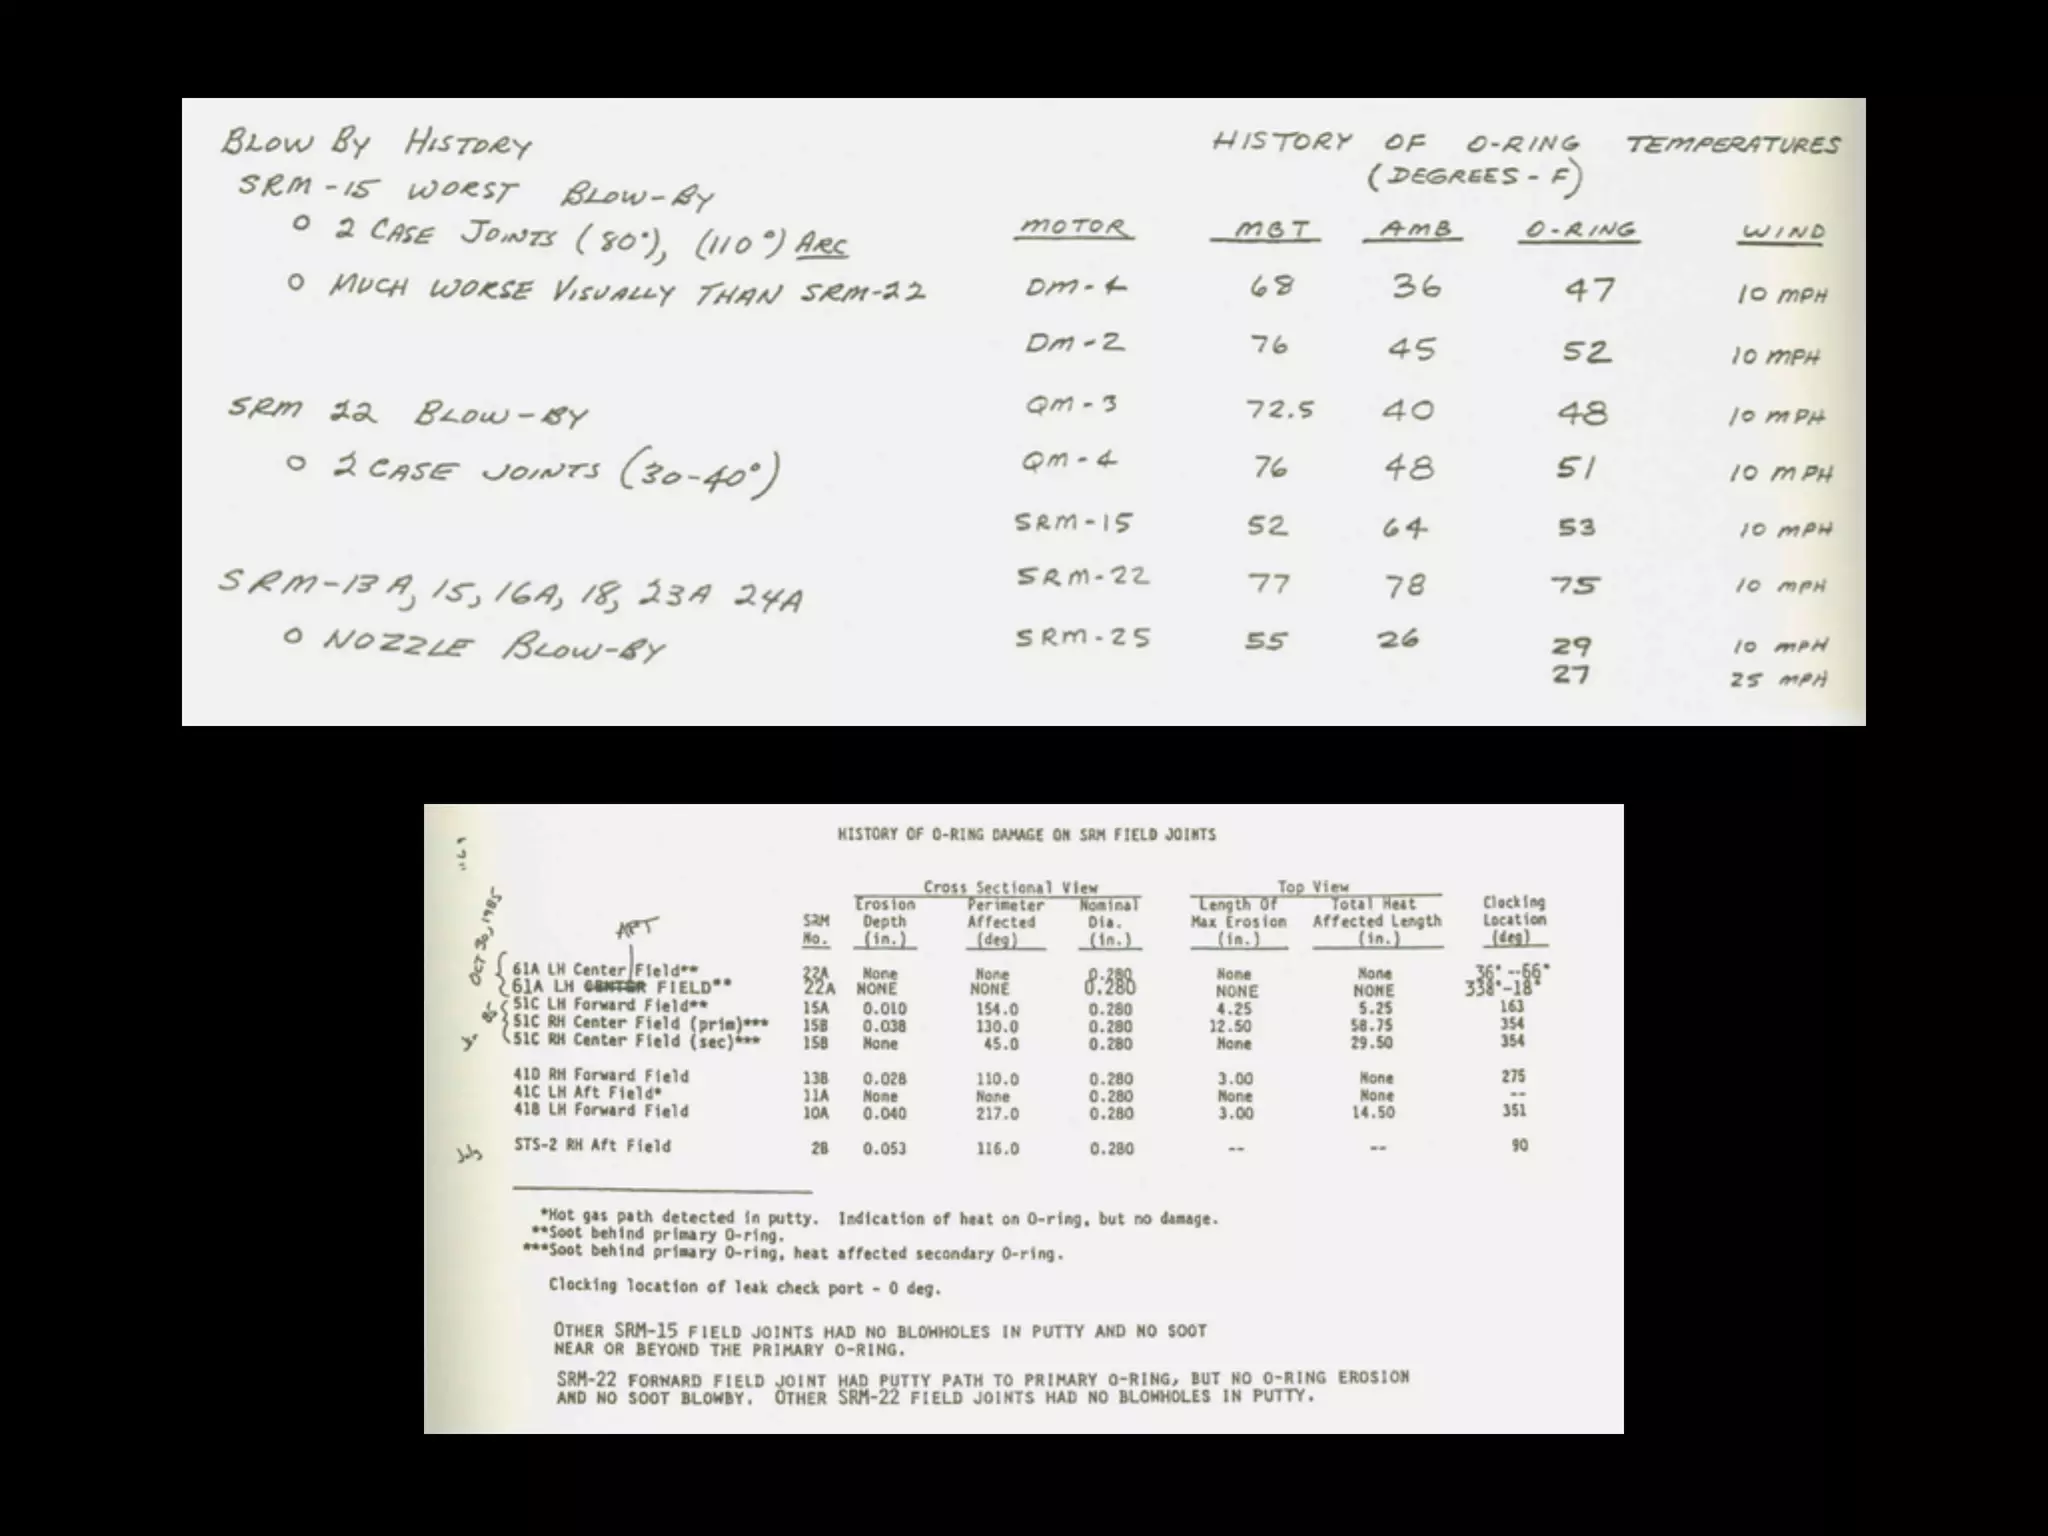 BLOW BY HISTORY
SRM-15 WORST BLOW-BY
○ 2 CASE JOINTS (80°), (110°) ARC
○ MUCH WORSE VISUALLY THAN SRM-22
SRM 22 BLOW-BY
○ 2 CASE JOINTS (30-40°)
SRM-13A, 15, 16A, 18, 23A 24A
○ NOZZLE BLOW-BY
HISTORY OF O-RING TEMPERATURES
(DEGREES-F)
MOTOR MBT AMB O-RING WIND
DM-4 68 36 47 10 MPH
DM-2 76 45 52 10 MPH
QM-3 72.5 40 48 10 MPH
QM-4 76 48 51 10 MPH
SRM-15 52 64 53 10 MPH
SRM-22 77 78 75 10 MPH
SRM-25 55 26 29 10 MPH
27 25 MPH
HISTORY OF O-RING DAMAGE ON SRM FIELD JOINTS
Cross Sectional View Top View
Erosion Perimeter Nominal Length Of Total Heat Clocking
SRM Depth Affected Dia. Max Erosion Affected Length Location
No. (in.) (deg) (in.) (in.) (in.) (deg)
OCT 30, 1985
61A LH Center Field** 22A None None 0.280 None None 36°--66°
61A LH CENTER FIELD** 22A NONE NONE 0.280 NONE NONE 338°-18°
51C LH Forward Field** 15A 0.010 154.0 0.280 4.25 5.25 163
51C RH Center Field (prim)*** 15B 0.038 130.0 0.280 12.50 58.75 354
51C RH Center Field (sec)*** 15B None 45.0 0.280 None 29.50 354
41D RH Forward Field 13B 0.028 110.0 0.280 3.00 None 275
41C LH Aft Field* 11A None None 0.280 None None --
41B LH Forward Field 10A 0.040 217.0 0.280 3.00 14.50 351
July
STS-2 RH Aft Field 2B 0.053 116.0 0.280 -- -- 90
*Hot gas path detected in putty. Indication of heat on O-ring, but no damage.
**Soot behind primary O-ring.
***Soot behind primary O-ring, heat affected secondary O-ring.
Clocking location of leak check port - 0 deg.
OTHER SRM-15 FIELD JOINTS HAD NO BLOWHOLES IN PUTTY AND NO SOOT
NEAR OR BEYOND THE PRIMARY O-RING.
SRM-22 FORWARD FIELD JOINT HAD PUTTY PATH TO PRIMARY O-RING, BUT NO O-RING EROSION
AND NO SOOT BLOWBY. OTHER SRM-22 FIELD JOINTS HAD NO BLOWHOLES IN PUTTY.